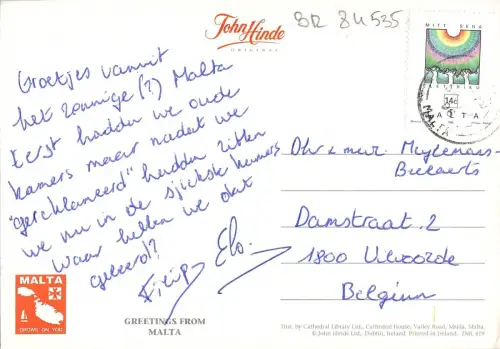 John Hinde
ORIGINAL
BR 84535
MITT SENA
14c
MALTA
MALTA
Groetjes vanuit
het zonnige (?) Malta
Eerst hadden we oude
kamers maar nadat we
"gereklameerd" hadden zitten
we nu in de sjiekste kamers
Waar hebben we dat
geleerd?
Filip Elo.
Dhr & mevr. Muylemans-
Bielaerts
Damstraat 2
1800 Vilvoorde
Belgium
MALTA
GROWS ON YOU
GREETINGS FROM
MALTA
Dist. by Cathedral Library Ltd., Cathedral House, Valley Road, Msida, Malta.
© John Hinde Ltd., Dublin, Ireland. Printed in Ireland.